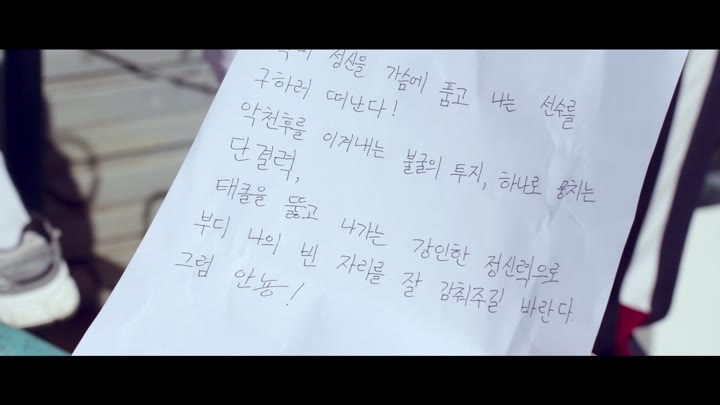 정신을 가슴에 품고 나는 선수를
구하러 떠난다!
악천후를 이겨내는 불굴의 투지, 하나로 뭉치는
단결력,
태클을 뚫고 나가는 강인한 정신력으로
부디 나의 빈 자리를 잘 감춰주길 바란다.
그럼 안뇽!